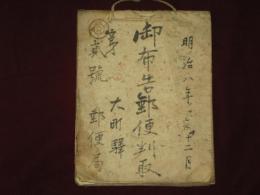 明治八年 十二月
御布告郵便判取
大町驛
郵便局
第貳號